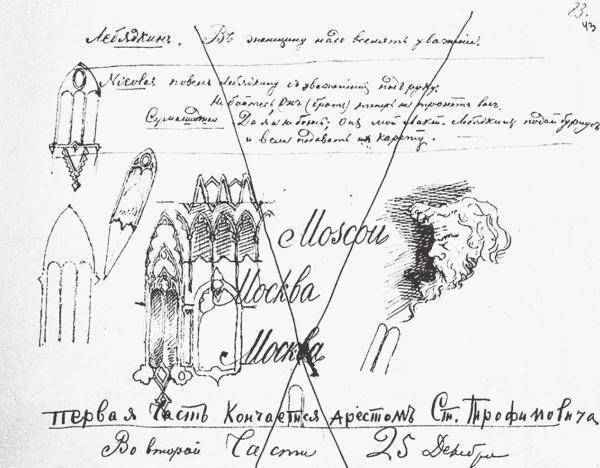 23.
43
Лебядкинъ. Въ женщину надо вселять уваженiе.
Nicolas повелъ Лебядкину съ уваженiемъ подъ руку:
Не бойтесь, Онъ (братъ) теперь не тронетъ васъ.
Сумасшедшая Да я не боюсь; Онъ мой лакей. Лебядкинъ подай бурнусъ
и вели подавать карету.
Moscou
Москва
Москва
Первая Часть Кончается Арестомъ Ст. Трофимовича
Во второй Части 25 Декабря